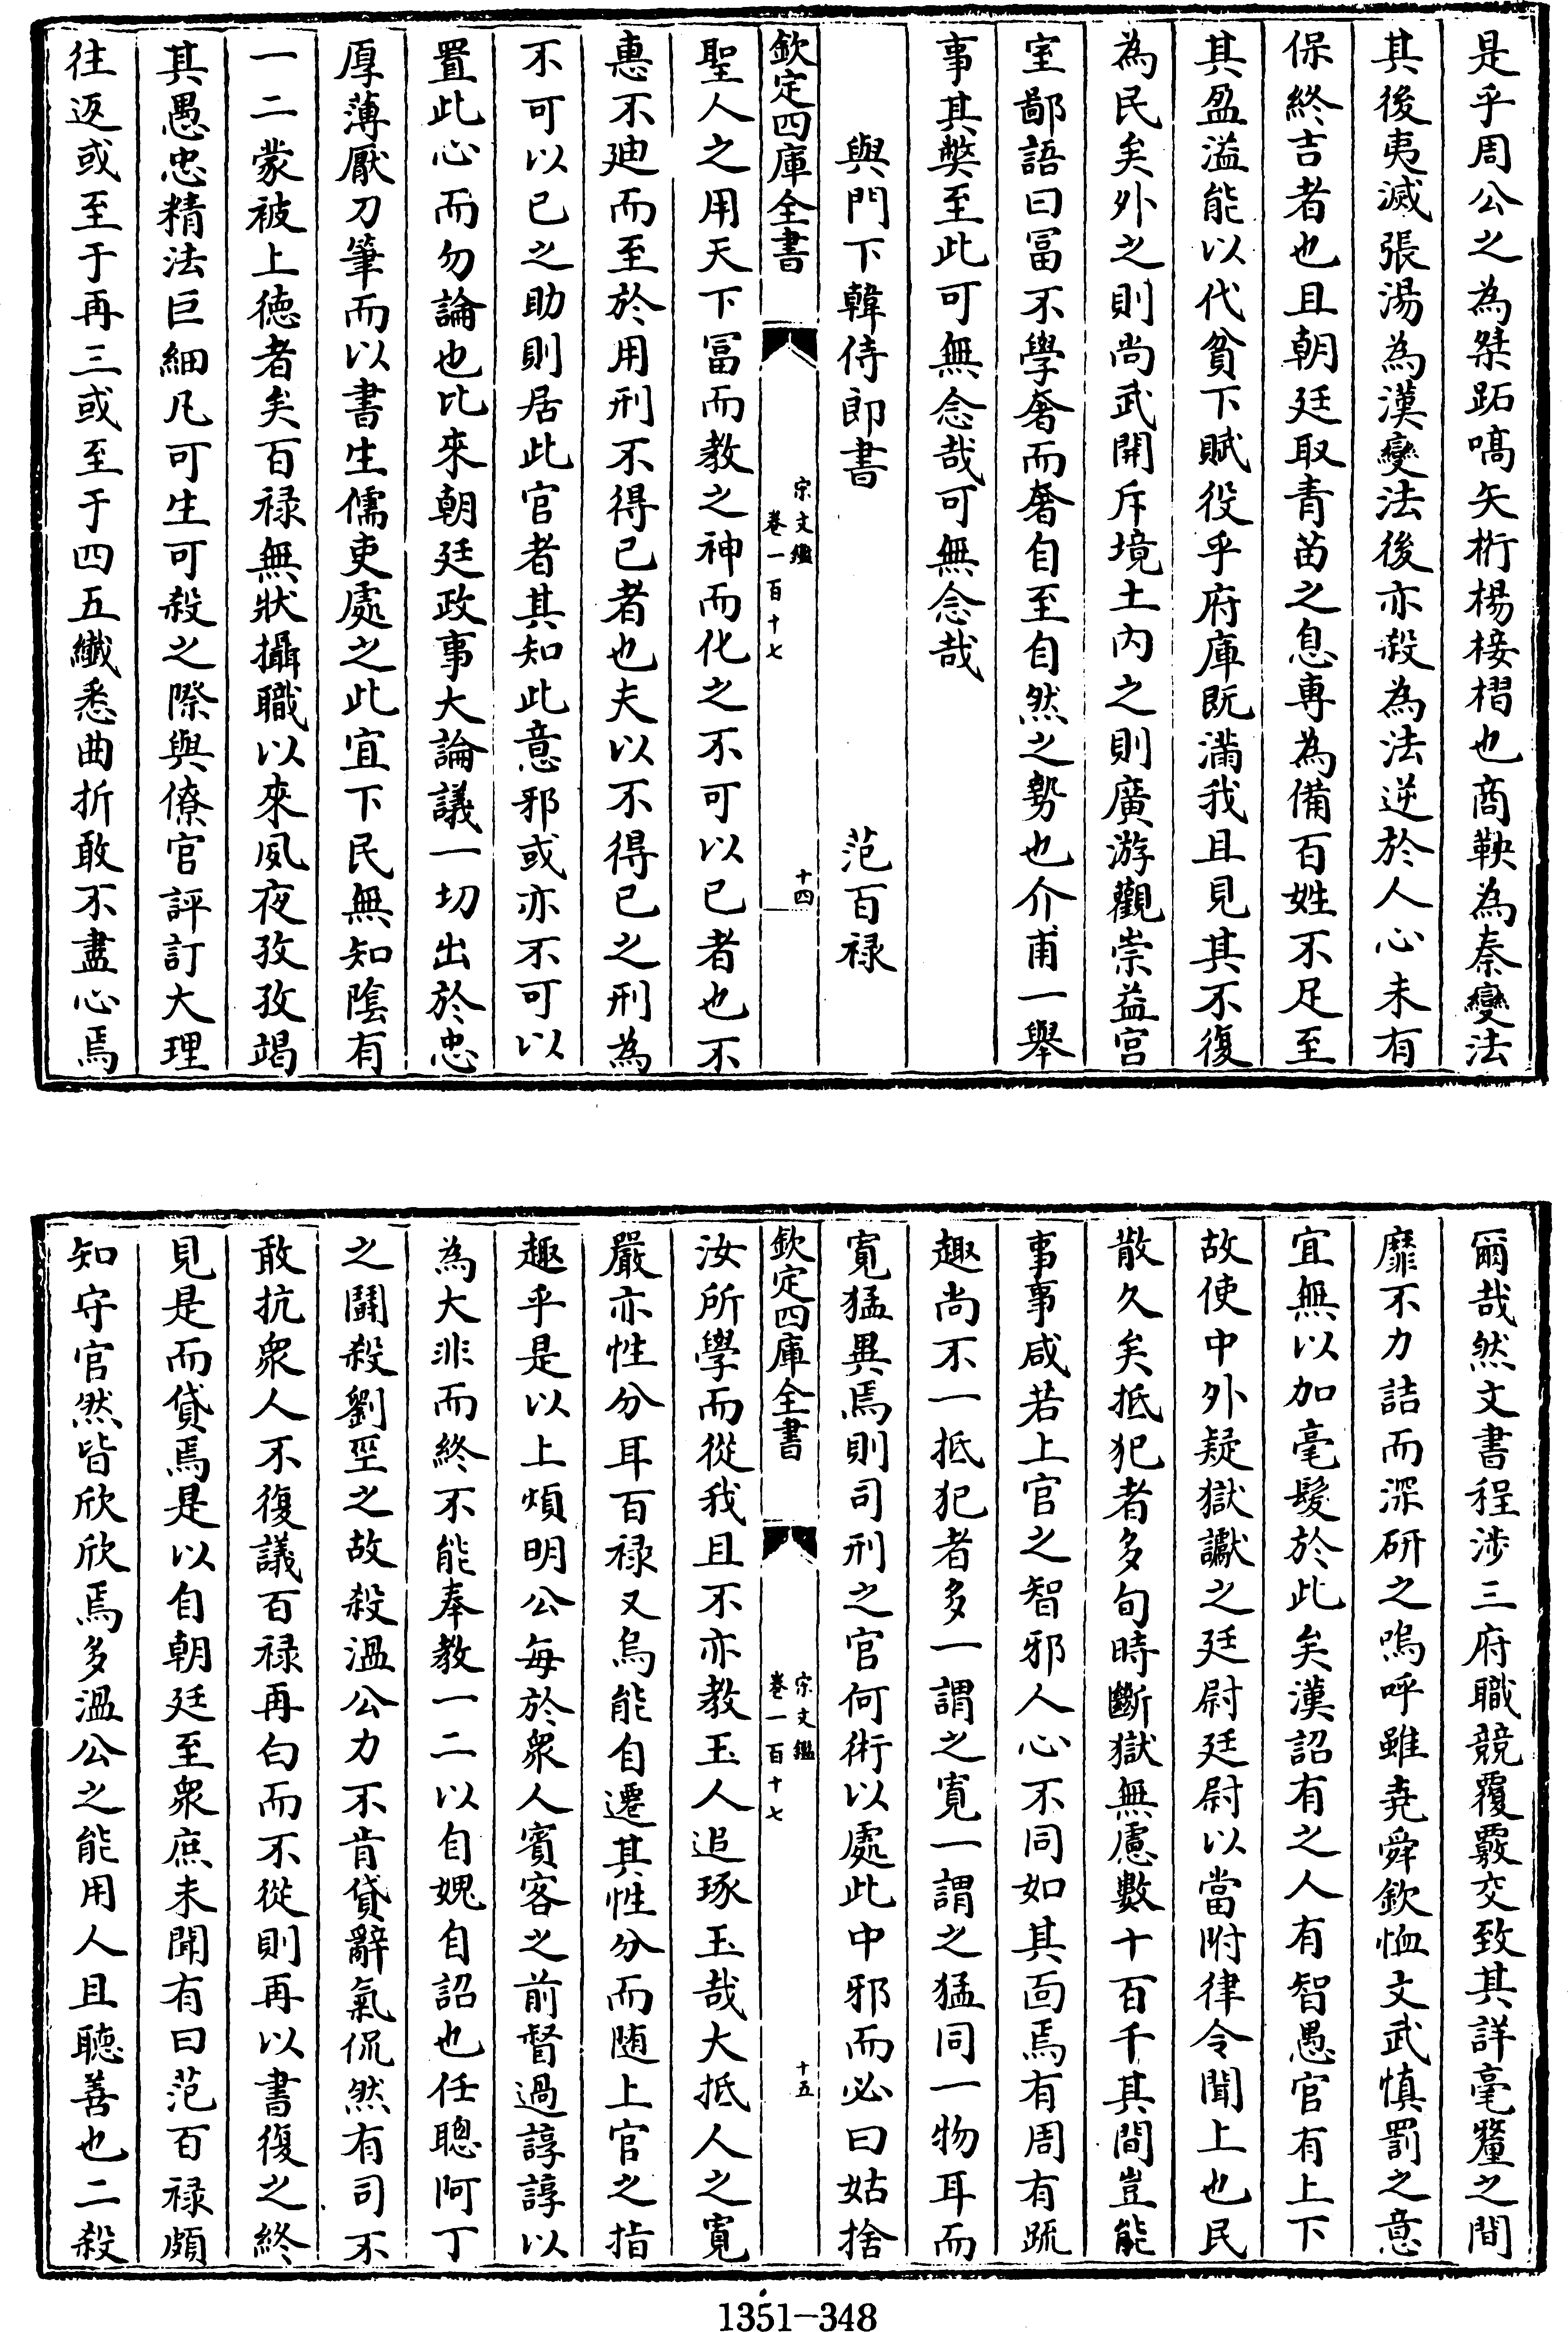 是乎周公之為桀跖嚆矢桁楊椄槢也商鞅為秦變法
其後夷滅張湯為漢變法後亦殺為法逆於人心未有
保終吉者也且朝廷取青苗之息專為備百姓不足至
其盈溢能以代貧下賦役乎府庫既滿我且見其不復
為民矣外之則尚武開斥境土内之則廣游觀崇益宫
室鄙語曰冨不學奢而奢自至自然之勢也介甫一舉
事其獘至此可無念哉可無念哉
與門下韓侍郎書 范百禄
欽定四庫全書 宋文鑑 卷一百十七 十四
聖人之用天下冨而教之神而化之不可以已者也不
惠不廸而至於用刑不得已者也夫以不得已之刑為
不可以已之助則居此官者其知此意邪或亦不可以
置此心而勿論也比來朝廷政事大論議一切出於忠
厚薄厭刀筆而以書生儒吏處之此宜下民無知隂有
一二蒙被上徳者矣百禄無狀攝職以來夙夜孜孜竭
其愚忠精法巨細凡可生可殺之際與僚官評訂大理
往返或至于再三或至于四五纎悉曲折敢不盡心焉
爾哉然文書程涉三府職競覆覈交致其詳毫釐之間
靡不力詰而深研之嗚呼雖堯舜欽恤文武慎罰之意
宜無以加毫髪於此矣漢詔有之人有智愚官有上下
故使中外疑獄讞之廷尉廷尉以當附律令聞上也民
散久矣抵犯者多旬時斷獄無慮數十百千其間豈能
事事咸若上官之智邪人心不同如其面焉有周有疏
趣尚不一抵犯者多一謂之寛一謂之猛同一物耳而
寛猛異焉則司刑之官何術以處此中邪而必曰姑捨
欽定四庫全書 宋文鑑 卷一百十七 十五
汝所學而從我且不亦教玉人追琢玉哉大抵人之寛
嚴亦性分耳百禄又烏能自遷其性分而随上官之指
趣乎是以上煩明公每於衆人賓客之前督過諄諄以
為大非而終不能奉教一二以自媿自詔也任聰阿丁
之鬭殺劉坙之故殺温公力不肯貸辭氣侃然有司不
敢抗衆人不復議百禄再白而不從則再以書復之終
見是而貸焉是以自朝廷至衆庶未聞有曰范百禄頗
知守官然皆欣欣焉多温公之能用人且聽善也二殺
1351-348